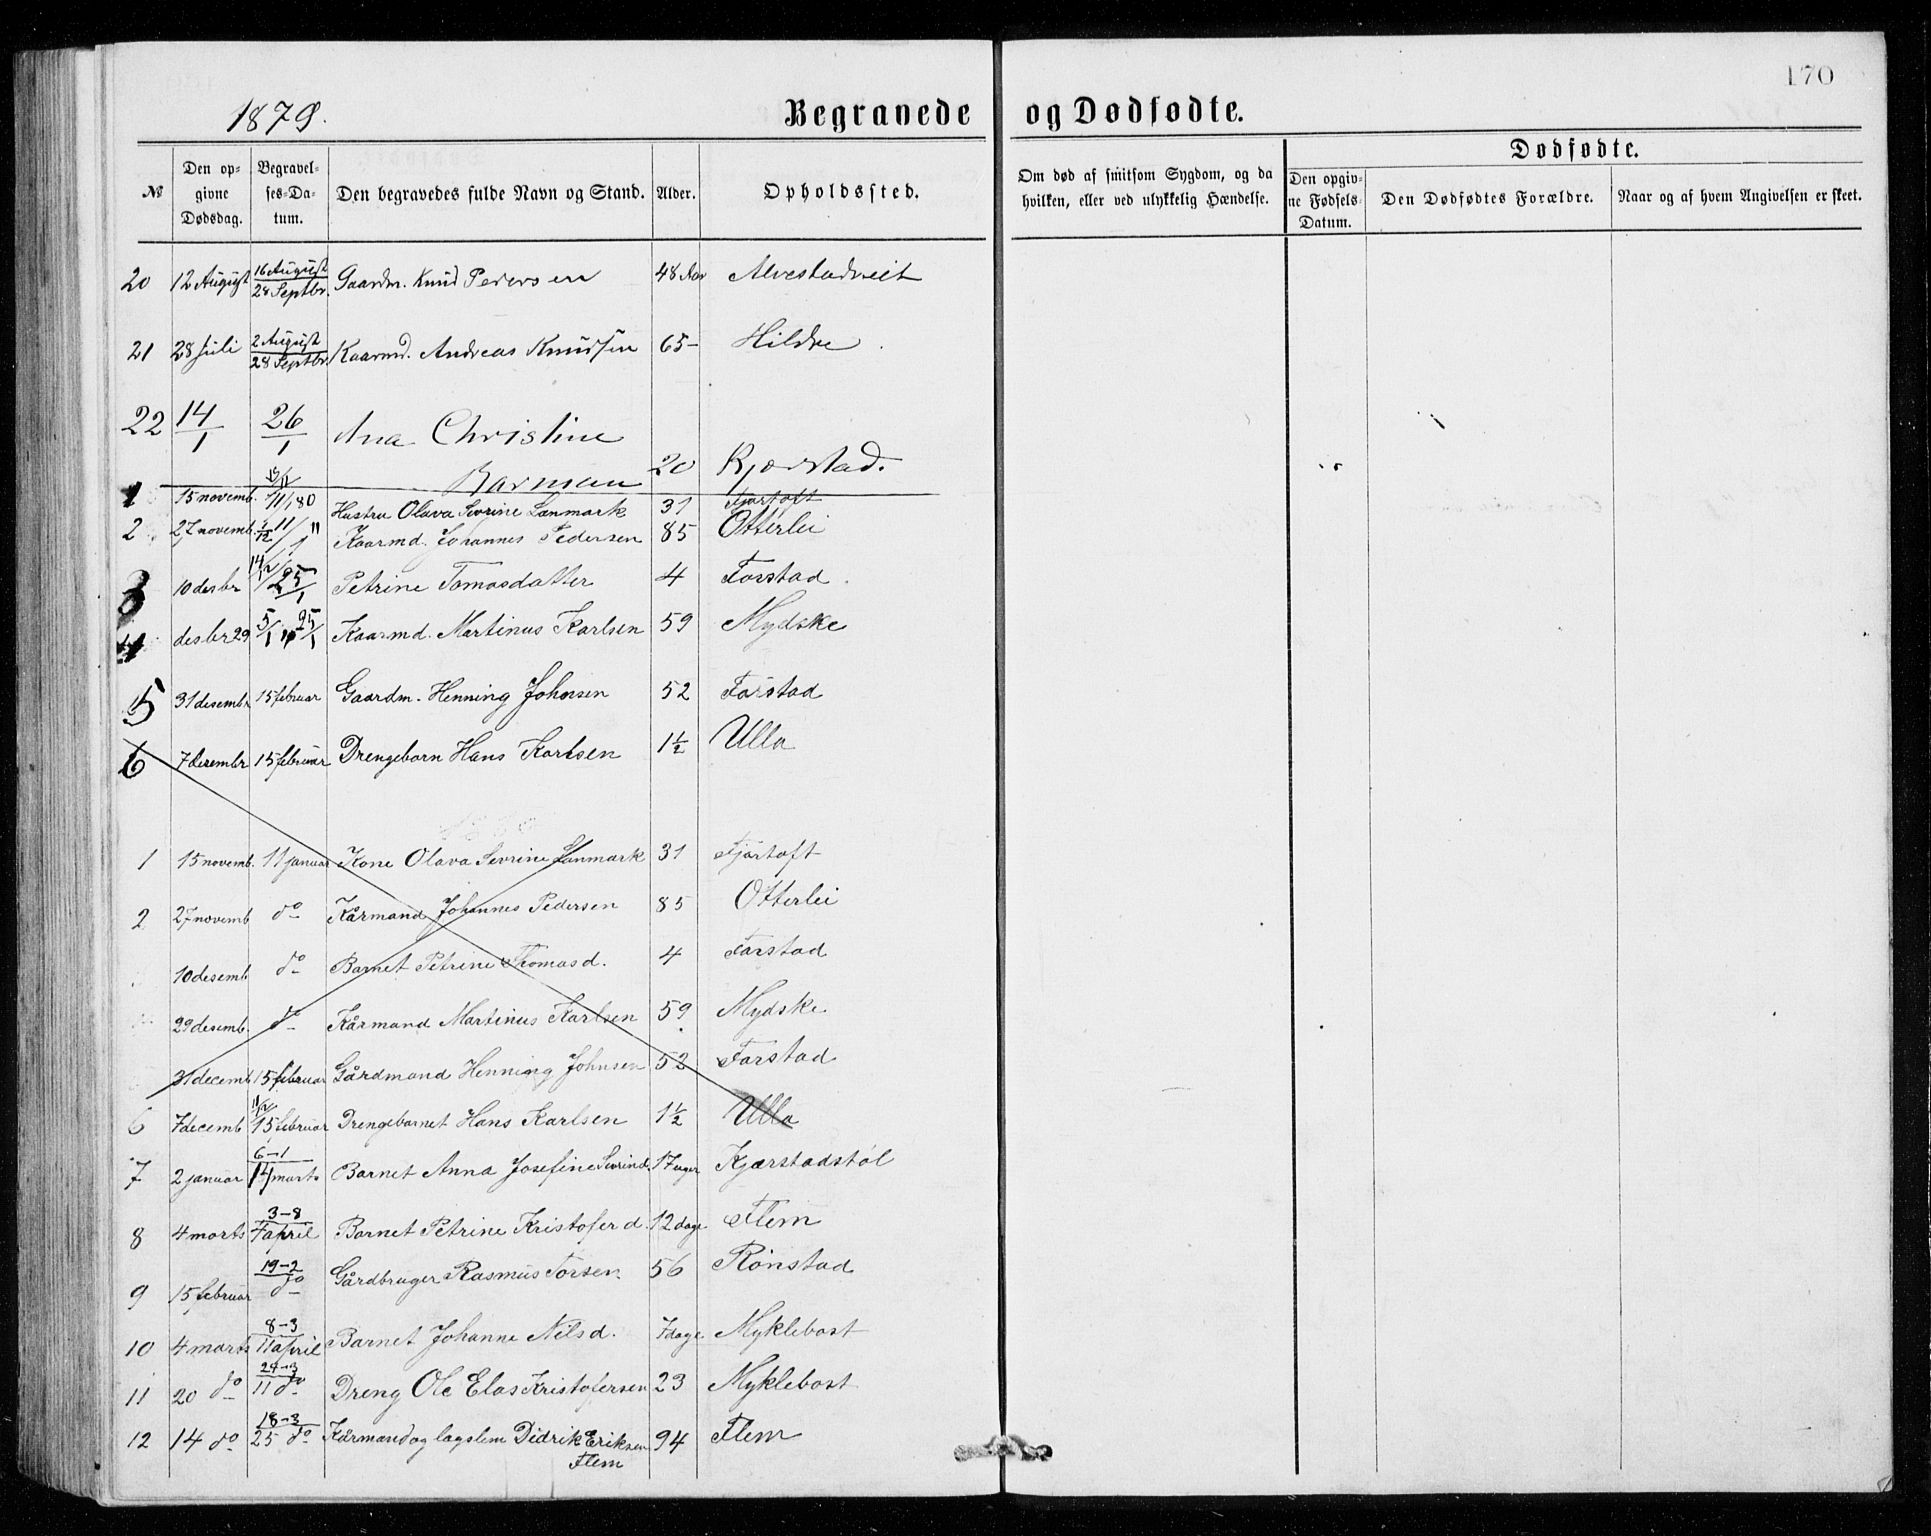 170
1879.
Begravede og Dødfødte.
№ Den opgivne Dødsdag. Begravelses-Datum. Den begravedes fulde Navn og Stand. Alder. Opholdssted. Om død af smitsom Sygdom, og da hvilken, eller ved ulykkelig Hændelse. Dødfødte. Den opgivne Fødsels-Datum. Den Dødfødtes Forældre. Naar og af hvem Angivelsen er skeet.
20 12 August 16 August 28 Septbr. Gaardm. Knud Pedersen 48 Aar Alvestadveit
21 28 Juli 2 August 28 Septbr Kaarmd. Andreas Knudsen 65- Hildre
22 14/1 26/1 Ana Christine
Barman 20 Kjerstad.
1 15 novemb. 11/1 80 Hustru Olava Sevrine Lanmark 31 Fjørtoft
2 27 novemb. 11/1 Kaarmd. Johannes Pedersen 85 Otterlei
3 10 desbr 14/12 25/1 Petrine Tomasdatter 4 Farstad
4 desbr 29 5/1 25/1 Kaarmd. Martinus Karlsen 59 Mydske
5 31 desembr 15 februar Gaardm. Henning Johnsen 52 Farstad
6 7 desembr 15 februar Drengebarn Hans Karlsen 1½ Ulla
1 15 novemb. 11 januar Kone Olava Sevrine Lanmark 31 Fjørtoft
2 27 novemb do Kårmand Johannes Pedersen 85 Otterlei
10 desemb do Barnet Petrine Thomasd. 4 Farstad
29 desemb. do Kårmand Martinus Karlsen 59 Mydske
31 decemb 15 februar Gårdmand Henning Johnsen 52 Farstad
6 7 decemb 11/12 15 februar Drengebarnet Hans Karlsen 1½ Ulla
7 2 januar 6-1 14 marts Barnet Anna Josefine Sevrind. 17 uger Kjærstadstöl
8 4 marts 3-8 7 april Barnet Petrine Kristofer d. 12 dage Flem
9 15 februar 19-2 do Gårdbruger Rasmus Torsen 56 Rönstad
10 4 marts 8-3 11 april Barnet Johanne Nilsd. 7 dage Myklebost
11 20 do 24-3 11 do Dreng Ole Elas Kristofersen 23 Myklebost
12 14 do 18-3 25 do Kårmand og lægslem Didrik Eriksen 94 Flem
Flem